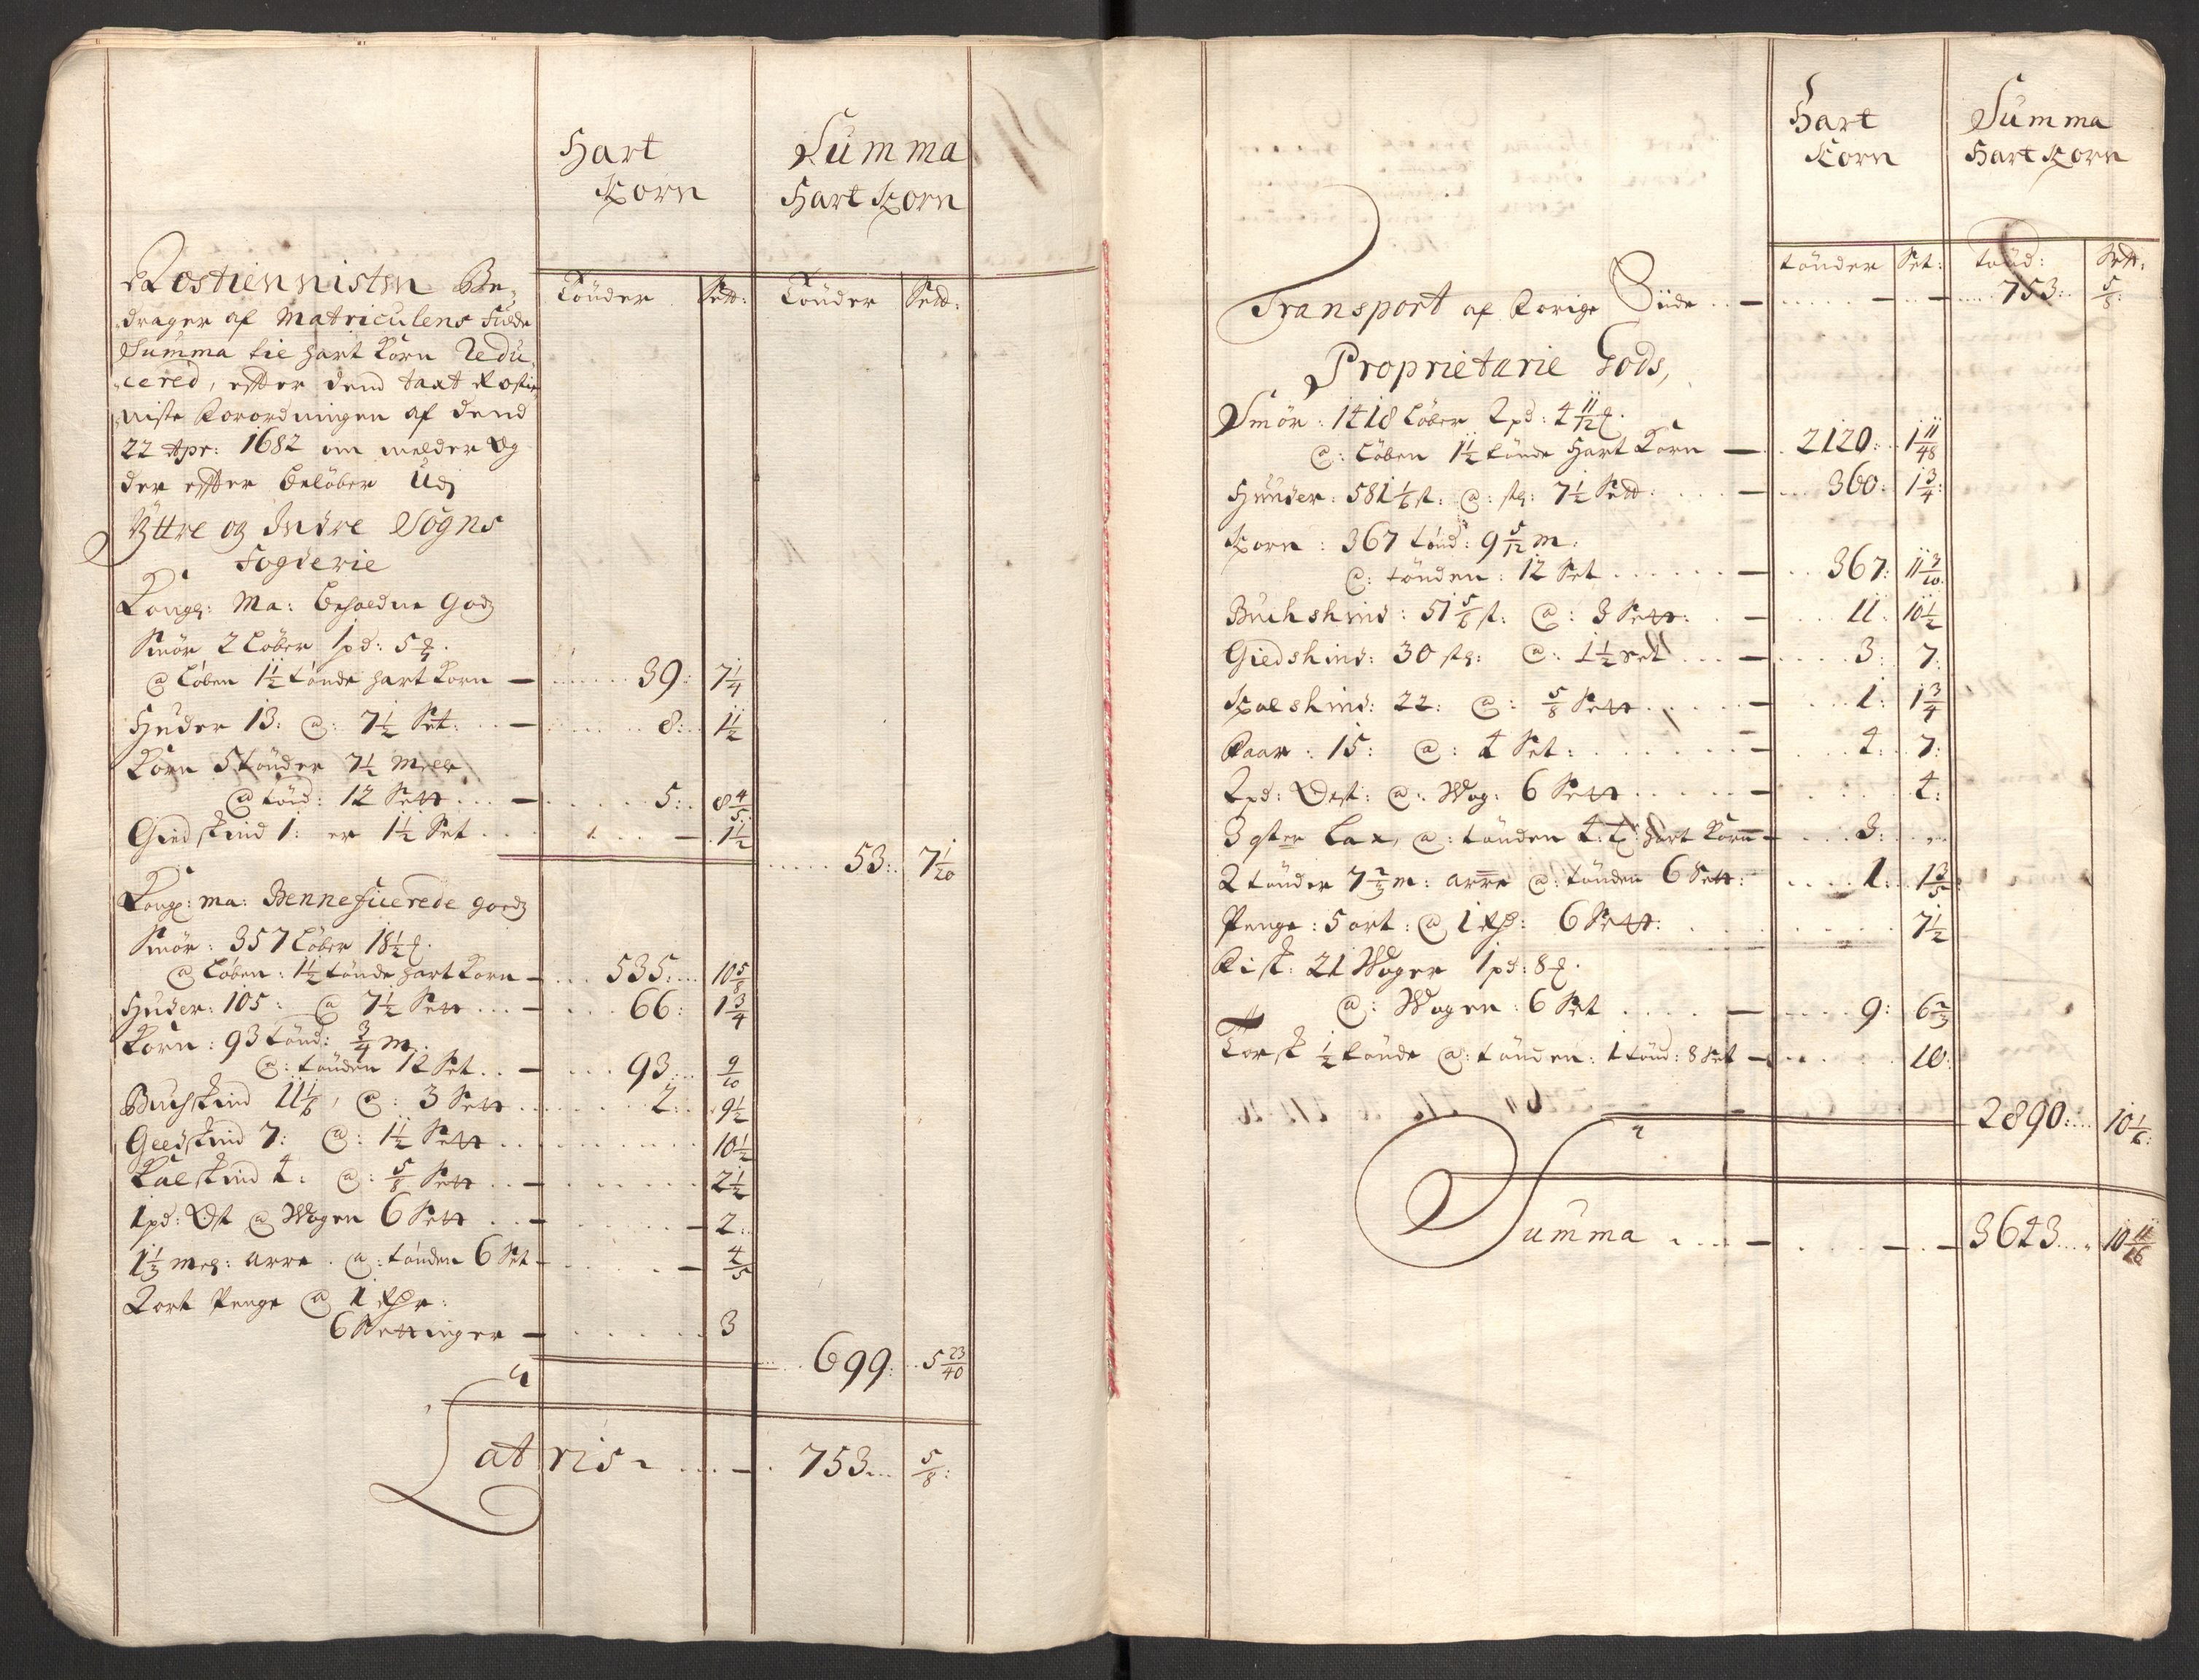 Hart
Korn
Summa
Hart Korn
Tönder
Sett:
Tönder
Sett:
Rostiennisten Be¬
drager af Matriculens fulde
Summa til hart Korn Redu¬
cered, effter dend taxt Rostie
niste Forordningen af dend
22 Apr: 1682 om melder og
der effter beløber Udj
Yttre og Indre Sogns
Fogderie
Kongl: Ma: beholdne Godz
Smör 2 Löber 1 pd: 5
@ Löben 1½ tönde hart Korn — 39: 7¼
Huder 13: @: 7½ Set: — 8: 1½
Korn 5 tönder 7½ Meele
@ tönd: 12 Sett — 5: 8 4/5
Giedskind 1: er 1½ Set — 1½
53: 7 1/20
Kongl: ma: Bennefuerede godz
Smör: 357 Löber 18½
@ Löben: 1½ tönde hart Korn — 535: 10 5/8
Huder: 105: @ 7½ Sett — 66: 1¾
Korn: 93 tönd: ¾ m:
@: tönden 12 Set — 93: 9/10
Buchskind 11 1/6, @: 3 Sett 2: 9½
Geedskind 7: @: 1½ Sett 10½
Kalskind 4: @: 5/8 Sett — 2½
1 pd: Ost @ Wogen 6 Sett — 2:
1⅓ mel: arre. @: tönden 6 Set — 4/5
2 ort Penge @ 1 Rdr:
6 Settinger — 3
699: 5 23/40
Latris — 753 5/8:
Hart
Korn
Summa
Hart Korn
tönder
Set:
tönd:
Sett:
Transport af Forige Siide — 753: 5/8:
Proprietarie Gods,
Smör: 1418 Löber 2 pd: 4 11/12
@: Löben 1½ tönde Hart Korn — 2120: 1 11/48
Huuder: 581 1/6 st: @: st: 7½ Sett: — 360: 1¾:
Korn: 367 tönd: 9 5/12 m:
@: tönden: 12 Set — 367: 11 3/10
Buchshind: 51 5/6 st: @: 3 Sett: — 11: 10½
Giedshind: 30 st: @: 1½ Set — 3: 7:
Kaleshind: 22: @: 5/8 Sett — 1: 1¾
Faar: 15: @: 4 Set: — 4: 7:
2 pd: Ost: @: Wog: 6 Sett — 4:
3 qster Lax, @: tönden 4: t: hart Korn — 3:
2 tönder 7⅔ m: arre @: tönden 6 Sett: 1: 1 3/5
Penge: 5 ort: @ 1 Rd: 6 Sett: 7½
Fisk: 21 Woger 1 pd: 8
@: Wogen: 6 Set — 9: 6⅔
Torsk ½ tönde @: tönden: 1 tönd: 8 Set — 10:
2890: 10 1/6:
Summa — 3643 10 11/16